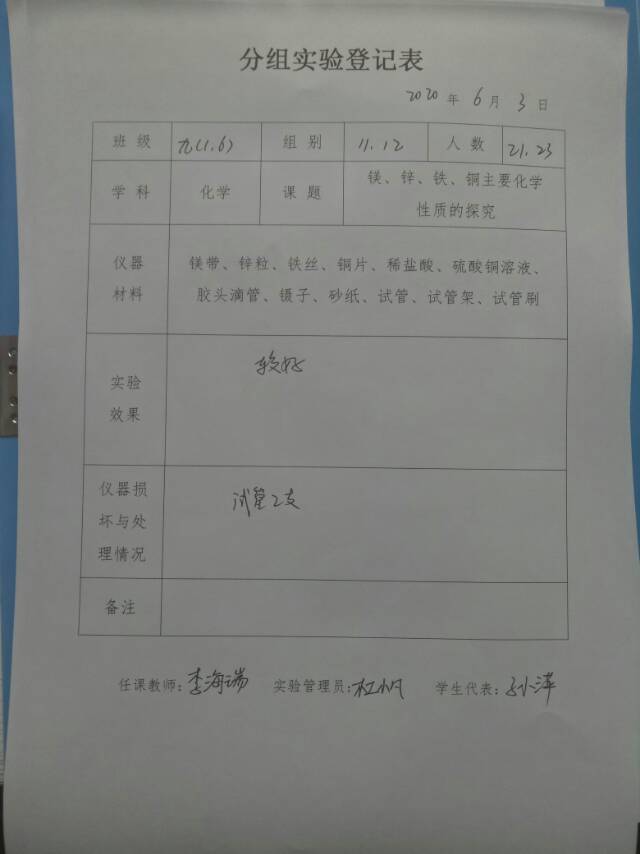 分组实验登记表
2020 年 6 月 3 日
班 级 九(1.6) 组 别 11.12 人 数 21.23
学 科 化学 课 题 镁、锌、铁、铜主要化学
性质的探究
仪器 镁带、锌粒、铁丝、铜片、稀盐酸、硫酸铜溶液、
材料 胶头滴管、镊子、砂纸、试管、试管架、试管刷
实验 较好
效果
仪器损 试管2支
坏与处
理情况
备注
任课教师:李海瑞 实验管理员:杜帆 学生代表: